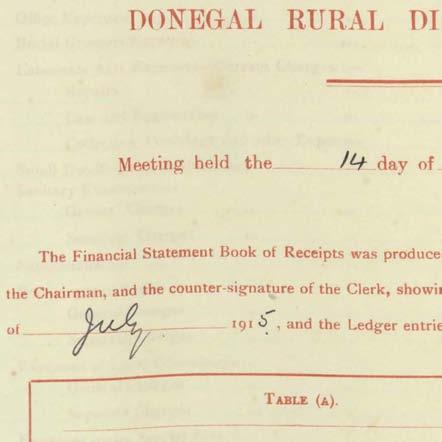 DONEGAL RURAL DI
Meeting held the 14 day of
The Financial Statement Book of Receipts was produce
the Chairman, and the counter-signature of the Clerk, showin
of July 1915, and the Ledger entrie
TABLE (A).